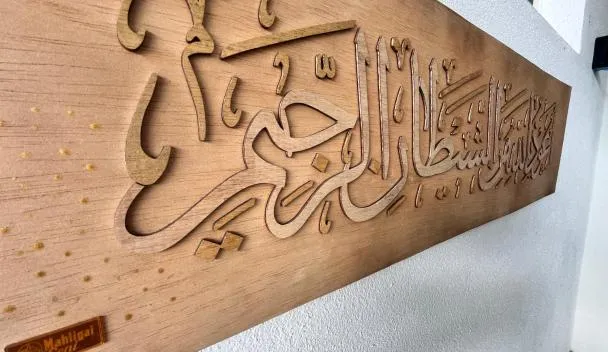 أعوذ بالله من الشيطان الرجيم
Mahligai